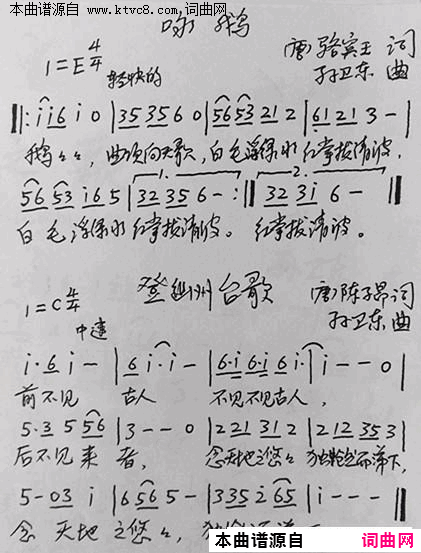 本曲谱源自
www.ktvc8.com,词曲网
咏 鹅
1=E 4/4
轻快的
(唐)骆宾王 词
孙卫东 曲
‖: i i 6 i 0 | 35 35 6 0 | 56 53 21 2 | 61 21 3 - |
鹅々々, 曲项向天歌, 白毛浮绿水 红掌拨清波,
1. 2.
56 53 i6 5 | 32 35 6 - :‖ 32 3i 6 - ‖
白毛浮绿水 红掌拨清波。 红掌拨清波。
登幽州台歌
1=C 4/4
中速
(唐)陈子昂 词
孙卫东 曲
i· 6 i - | 6 i· i - | 6·i 6·i 6 i· | i - - 0 |
前不见 古人 不见不见古人,
5·3 5 56 | 3 - - 0 | 221 31 2 | 212 35 3 |
后不见 来 者, 念天地之悠々 独怆然而涕下,
5 - 03 i | 6 56 5 - | 335 2 65 | i - - - ‖
念 天地 之悠々,
本曲谱源自 词曲网